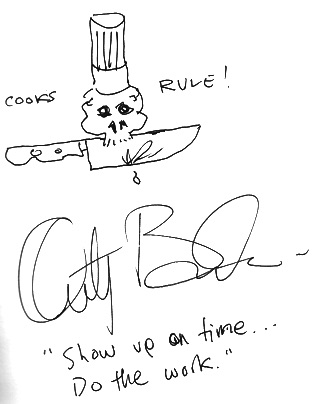 COOKS RULE!
"Show up on time...
Do the work."